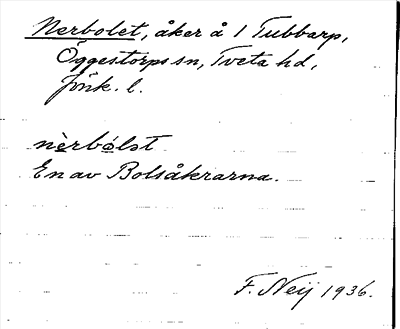 Nerbolet, åker å 1 Tubbarp,
Öggestorps sn, Tveta hd,
Jönk. l.
nèrbólət
En av Bolsåkrarna.
F. Neij 1936.